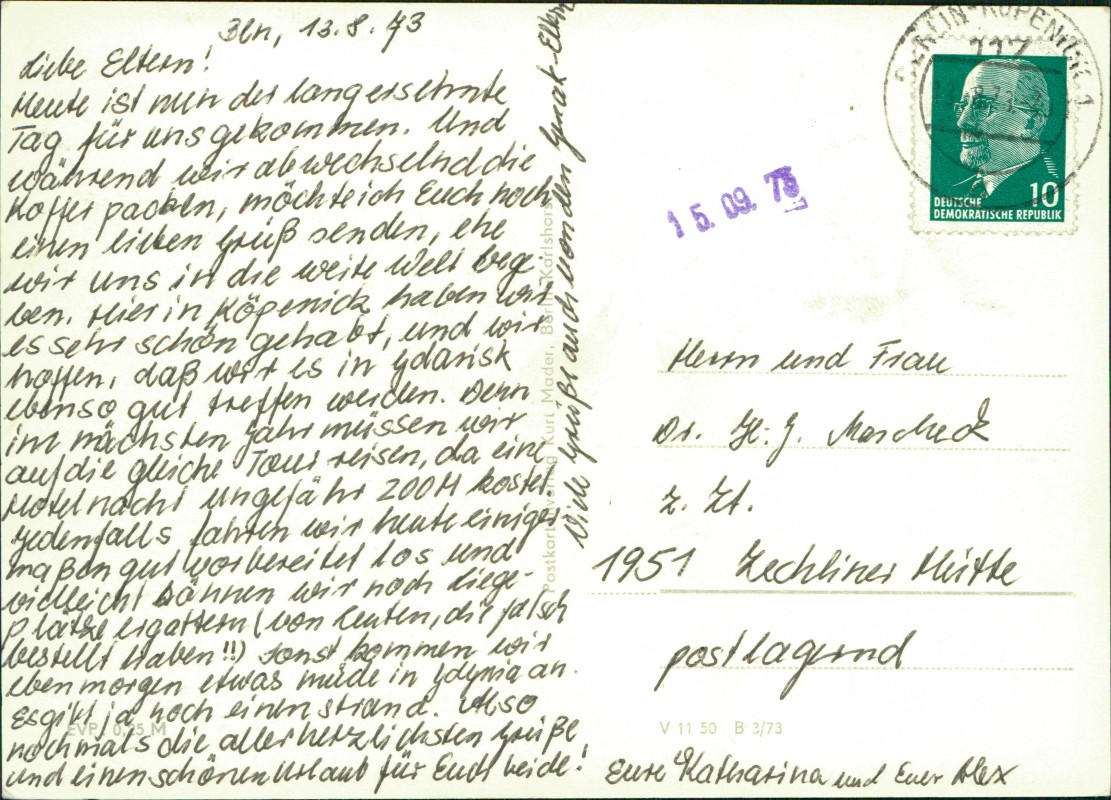 Bln, 13.8.73
Liebe Eltern!
Heute ist nun der langersehnte
Tag für uns gekommen. Und
während wir abwechselnd die
Koffer packen, möchte ich Euch noch
einen lieben Gruß senden, ehe
wir uns in die weite Welt bege
ben. Hier in Köpenick haben wir
es sehr schön gehabt, und wir
hoffen, daß wir es in Gdańsk
ebenso gut treffen werden. Denn
im nächsten Jahr müssen wir
auf die gleiche Tour reisen, da eine
Hotelnacht ungefähr 200M kostet.
Jedenfalls fahren wir heute einiger
maßen gut vorbereitet los und
vielleicht können wir noch Liege-
plätze ergattern (von Leuten, die falsch
bestellt haben!!) sonst kommen wir
eben morgen etwas müde in Gdynia an.
Es gibt ja noch einen Strand. Also
nochmals die allerherzlichsten Grüße
und einen schönen Urlaub für Euch beide!
Eure Katharina und Euer Alex
Viele Grüße auch von den Eltern
Postkartenverlag Kurt Mader, Berlin-Karlshorst
EVP 0,25 M
BERLIN-KÖPENICK 1
117
DEUTSCHE
DEMOKRATISCHE REPUBLIK
10
15.09.73
Herrn und Frau
Dr. H.-J. Mascheck
z. Zt.
1951 Zechliner Hütte
postlagernd
V 11 50 B 3/73